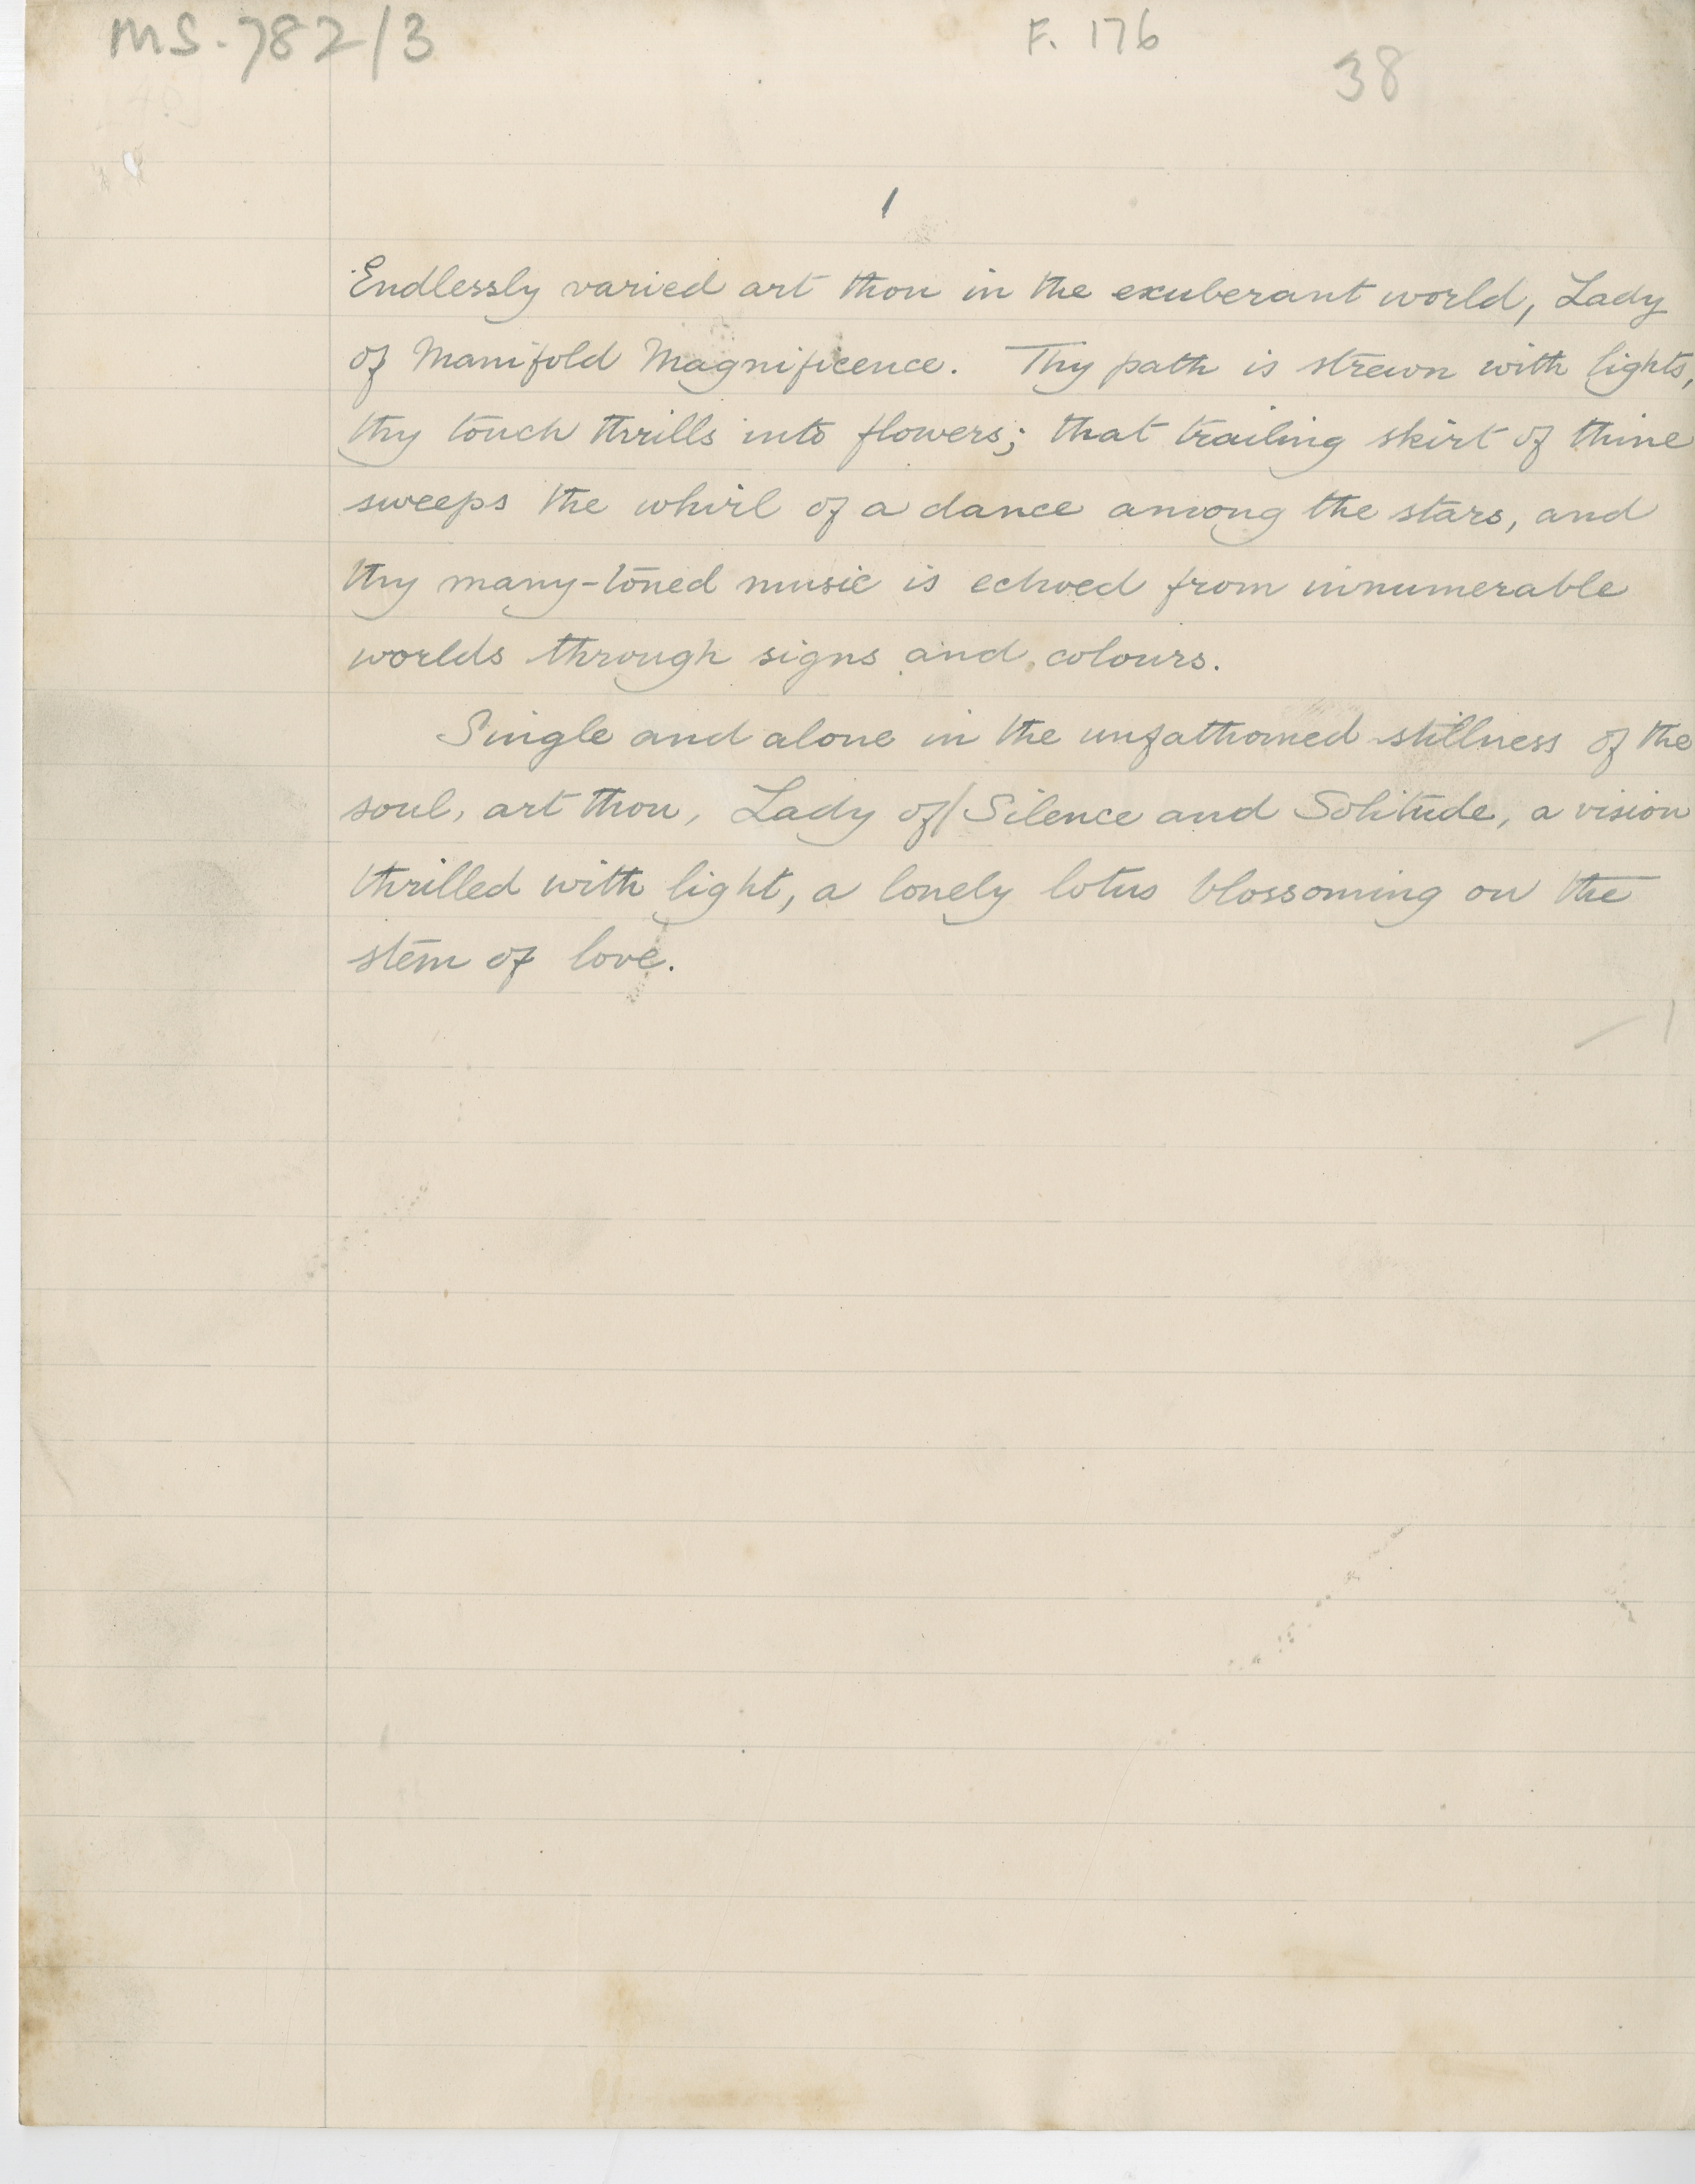 MS-782/3
F. 176
38
1
Endlessly varied art thou in the exuberant world, Lady
of Manifold Magnificence. Thy path is strewn with lights,
thy touch thrills into flowers; that trailing skirt of thine
sweeps the whirl of a dance among the stars, and
thy many-toned music is echoed from innumerable
worlds through signs and colours.
Single and alone in the unfathomed stillness of the
soul, art thou, Lady of Silence and Solitude, a vision
thrilled with light, a lonely lotus blossoming on the
stem of love.